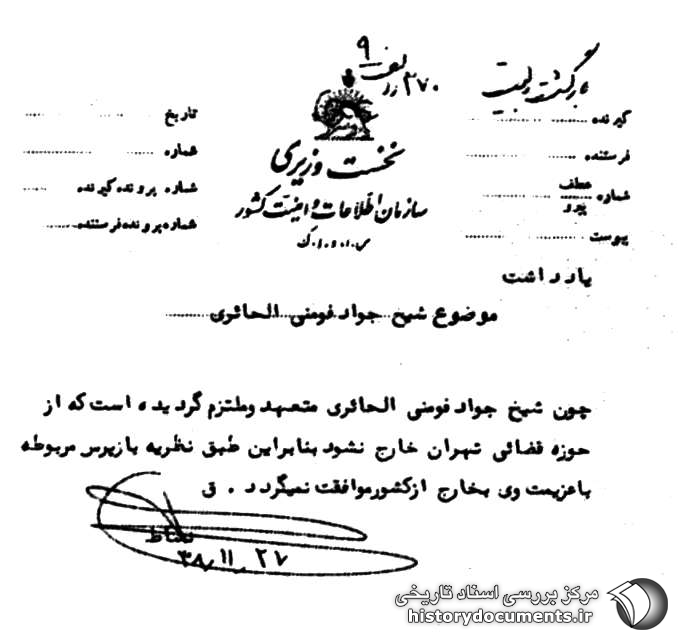 ۹
۳۷۰
بازگشت
نخست وزیری
سازمان اطلاعات و امنیت کشور
س.ا.و.ا.ک
گیرنده
فرستنده
شماره عطف
پیرو
پیوست
تاریخ
شماره
شماره پرونده گیرنده
شماره پرونده فرستنده
یادداشت
موضوع شیخ جواد فومنی الحائری
چون شیخ جواد فومنی الحائری متعهد وملتزم گردیده است که از
حوزه قضائی تهران خارج نشود بنابراین طبق نظریه بازپرس مربوطه
باعزیمت وی بخارج ازکشورموافقت نمیگردد . ق
نشاط
۳۸/۱۱/۲۷
مرکز بررسی اسناد تاریخی
historydocuments.ir